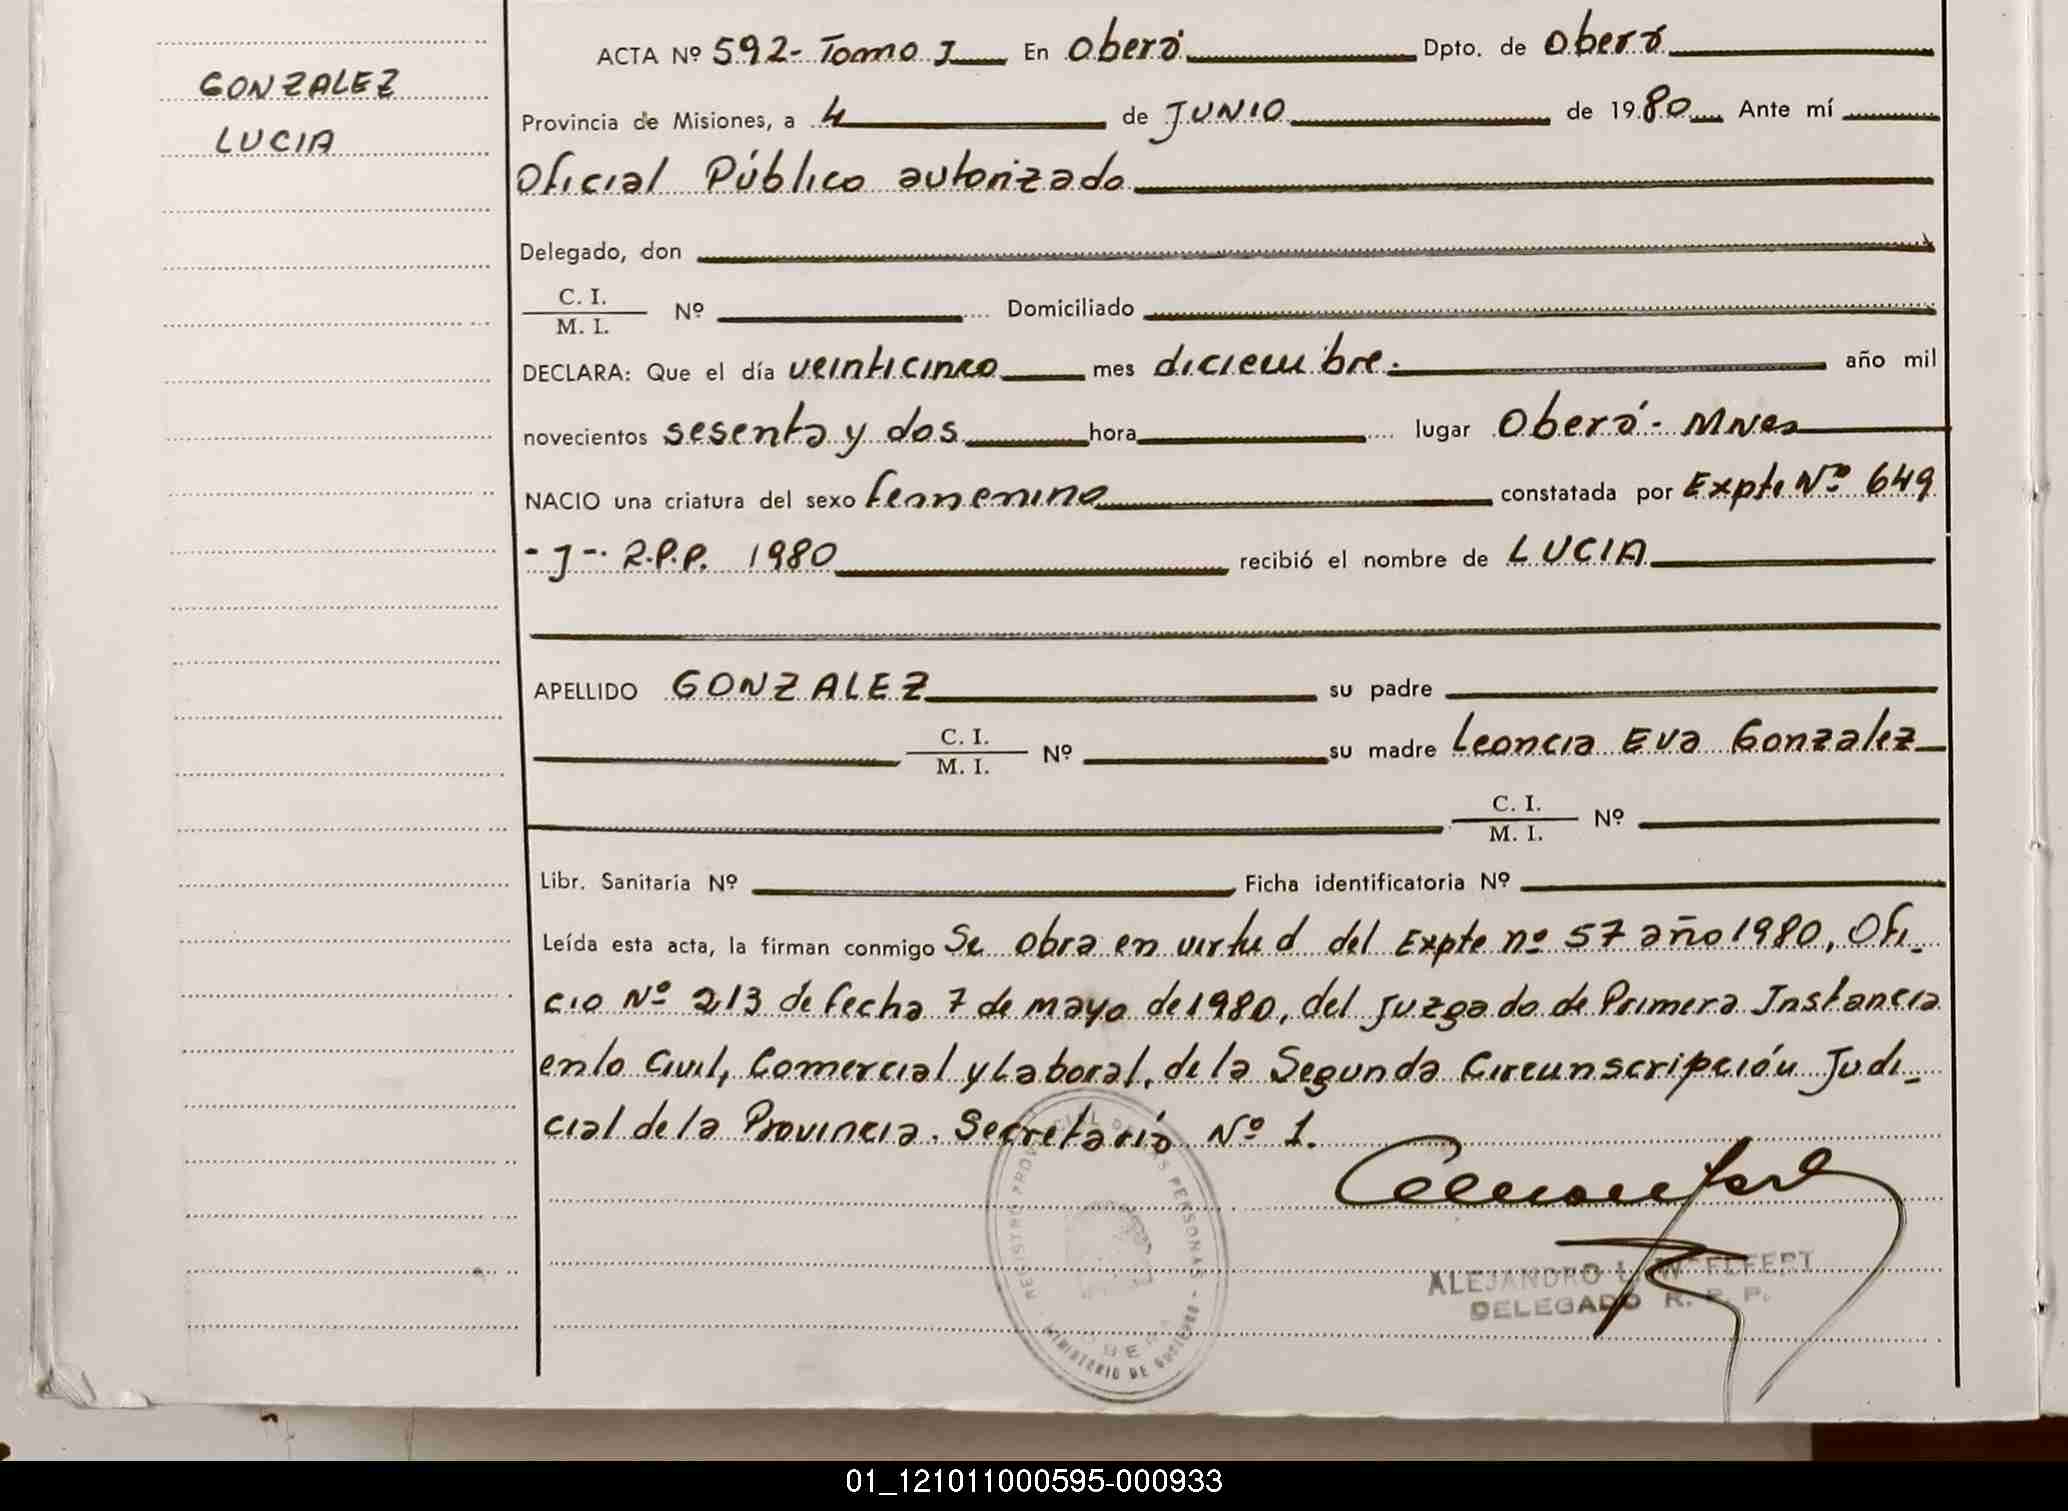 GONZALEZ
LUCIA
ACTA Nº 592- Tomo I En Oberá Dpto. de Oberá
Provincia de Misiones, a 4 de JUNIO de 1980 Ante mí
Oficial Público autorizado
Delegado, don
C. I.
M. I.
Nº Domiciliado
DECLARA: Que el día veinticinco mes diciembre. año mil
novecientos sesenta y dos hora lugar Oberá- MNes
NACIO una criatura del sexo femenino constatada por Expte Nº 649
-J- R.P.P. 1980 recibió el nombre de LUCIA
APELLIDO GONZALEZ su padre
C. I.
M. I.
Nº su madre Leoncia Eva Gonzalez
C. I.
M. I.
Nº
Libr. Sanitaria Nº Ficha identificatoria Nº
Leída esta acta, la firman conmigo Se obra en virtud del Expte nº 57 año 1980, Ofi-
cio Nº 213 de fecha 7 de mayo de 1980, del Juzgado de Primera Instancia
en lo Civil, Comercial y Laboral, de la Segunda Circunscripción Judi-
cial de la Provincia. Secretaría Nº 1.
REGISTRO PROVINCIAL DE LAS PERSONAS
OBERA
MINISTERIO DE GOBIERNO
ALEJANDRO
DELEGADO R. P. P.
01_121011000595-000933